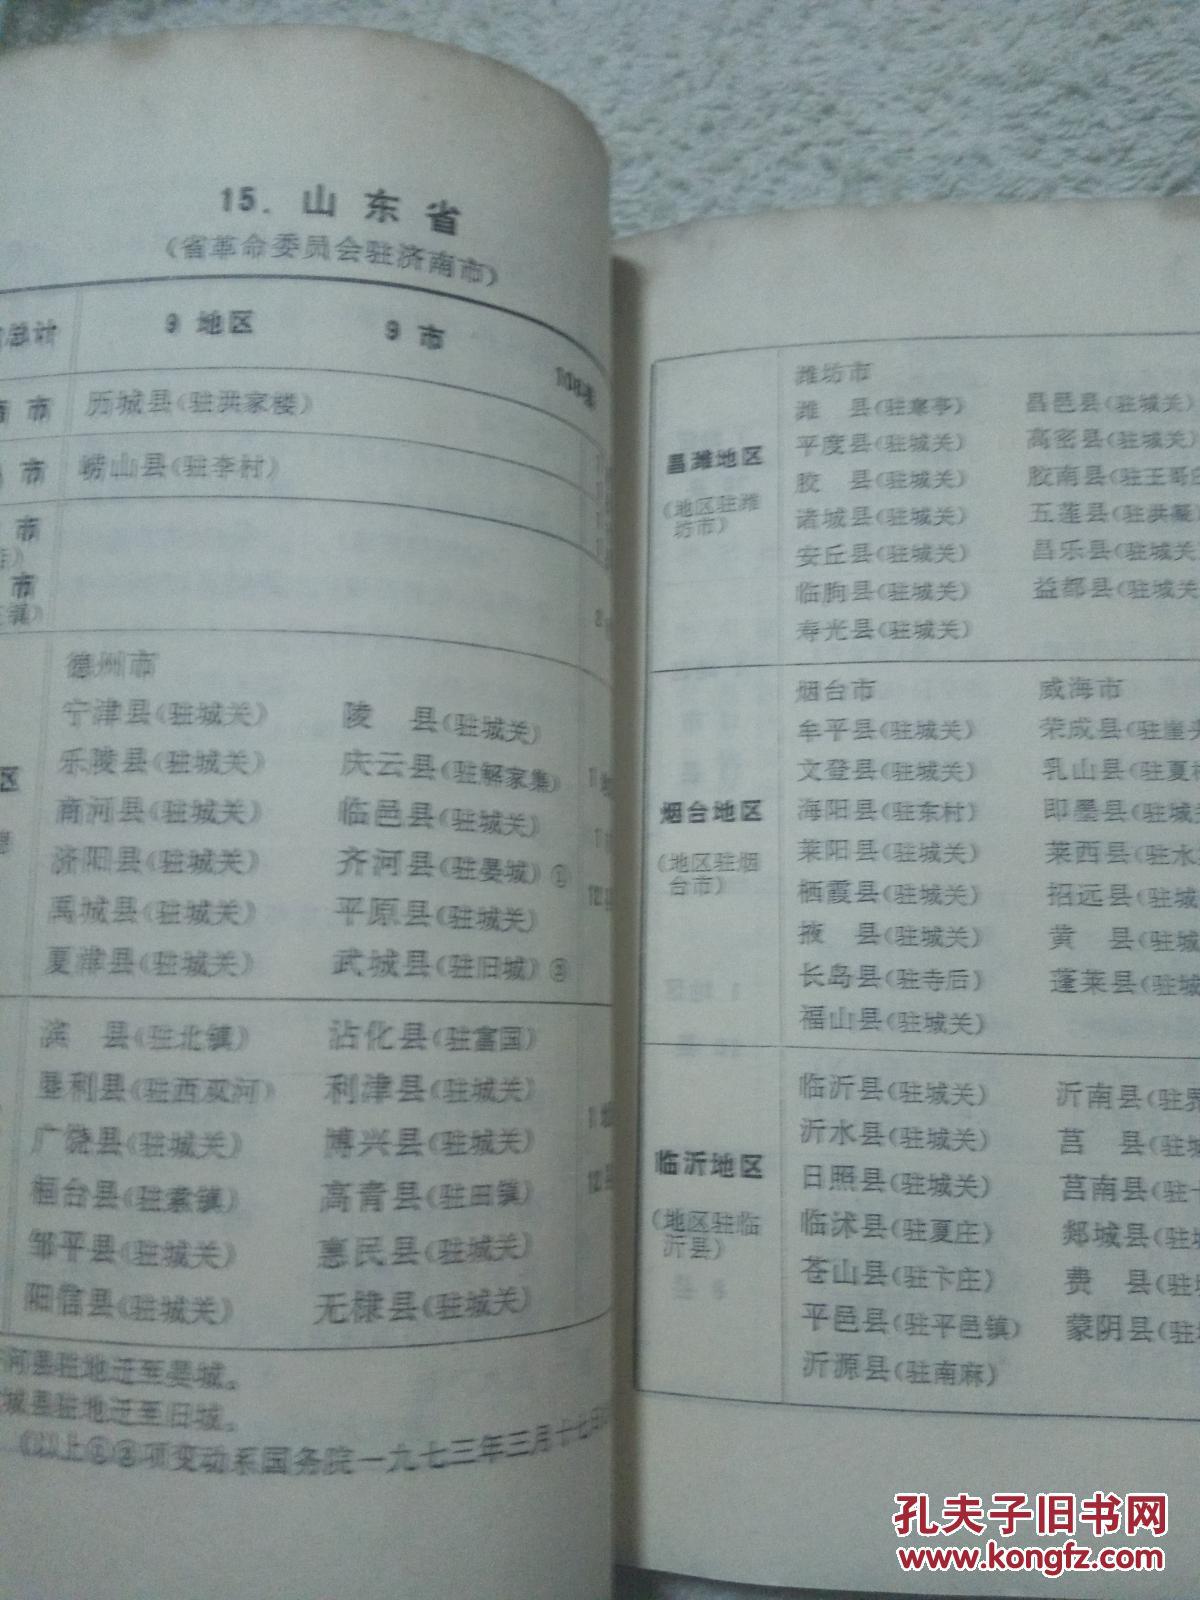 15. 山东省
(省革命委员会驻济南市)
总计 9 地区 9 市 108县
市 历城县(驻洪家楼)
市 崂山县(驻李村)
市
市
德州市
宁津县(驻城关) 陵 县(驻城关)
乐陵县(驻城关) 庆云县(驻解家集)
区
商河县(驻城关) 临邑县(驻城关)
济阳县(驻城关) 齐河县(驻晏城)①
禹城县(驻城关) 平原县(驻城关)
夏津县(驻城关) 武城县(驻旧城)②
滨 县(驻北镇) 沾化县(驻富国)
垦利县(驻西双河) 利津县(驻城关)
广饶县(驻城关) 博兴县(驻城关)
桓台县(驻索镇) 高青县(驻田镇)
邹平县(驻城关) 惠民县(驻城关)
阳信县(驻城关) 无棣县(驻城关)
河县驻地迁至晏城。
城县驻地迁至旧城。
(以上①②项变动系国务院一九七三年三月十七日
昌潍地区
(地区驻潍
坊市)
潍坊市
潍 县(驻寒亭) 昌邑县(驻城关)
平度县(驻城关) 高密县(驻城关)
胶 县(驻城关) 胶南县(驻王哥庄
诸城县(驻城关) 五莲县(驻洪凝)
安丘县(驻城关) 昌乐县(驻城关
临朐县(驻城关) 益都县(驻城关
寿光县(驻城关)
烟台地区
(地区驻烟
台市)
烟台市 威海市
牟平县(驻城关) 荣成县(驻崖头
文登县(驻城关) 乳山县(驻夏
海阳县(驻东村) 即墨县(驻城关
莱阳县(驻城关) 莱西县(驻水
栖霞县(驻城关) 招远县(驻城
掖 县(驻城关) 黄 县(驻城
长岛县(驻寺后) 蓬莱县(驻城
福山县(驻城关)
临沂地区
(地区驻临
沂县)
临沂县(驻城关) 沂南县(驻界
沂水县(驻城关) 莒 县(驻城
日照县(驻城关) 莒南县(驻十
临沭县(驻夏庄) 郯城县(驻城
苍山县(驻卞庄) 费 县(驻城
平邑县(驻平邑镇) 蒙阴县(驻城
沂源县(驻南麻)
孔夫子旧书网
www.kongfz.com